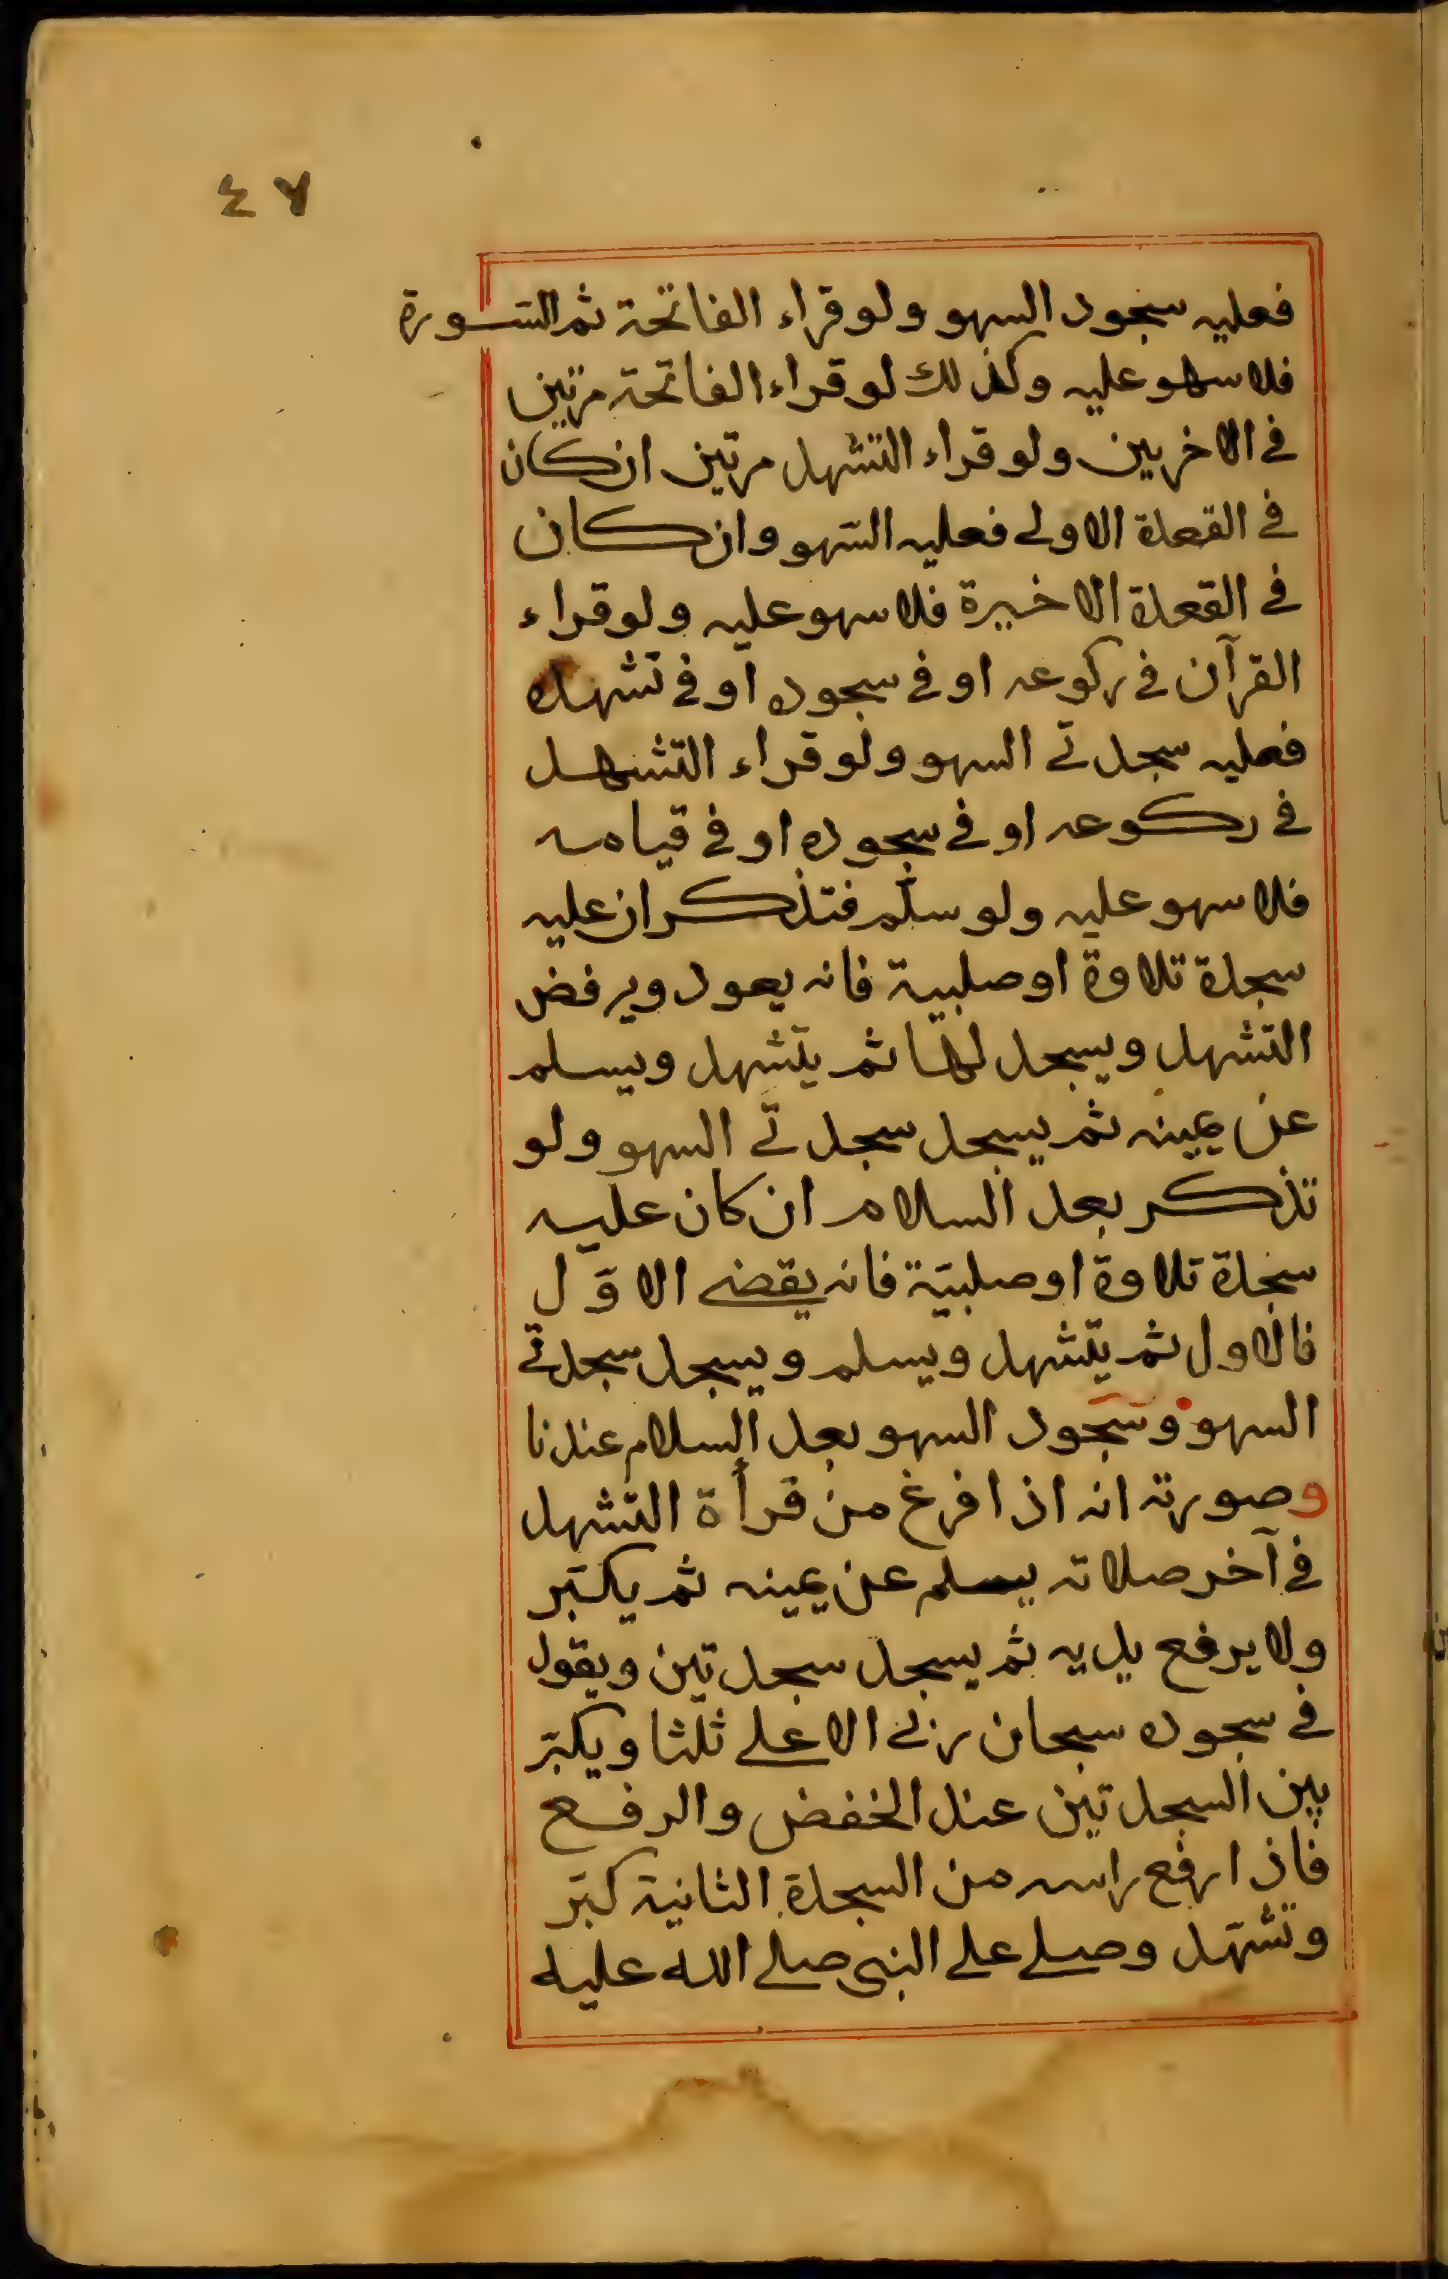 ٤٧
فعليه سجود السهو ولو قراء الفاتحة ثم السورة
فلا سهو عليه وكذلك لو قراء الفاتحة مرتين
في الاخريين ولو قراء التشهد مرتين ان كان
في القعدة الاولى فعليه السهو وان كان
في القعدة الاخيرة فلا سهو عليه ولو قراء
القرآن في ركوعه او في سجوده او في تشهده
فعليه سجدتي السهو ولو قراء التشهد
في ركوعه او في سجوده او في قيامه
فلا سهو عليه ولو سلم فتذكر ان عليه
سجدة تلاوة او صلبية فانه يعود ويرفض
التشهد ويسجد لها ثم يتشهد ويسلم
عن يمينه ثم يسجد سجدتي السهو ولو
تذكر بعد السلام ان كان عليه
سجدة تلاوة او صلبيّة فانه يقضي الاوّل
فالاول ثم يتشهد ويسلم ويسجد سجدتي
السهو وسجود السهو بعد السلام عندنا
وصورته انه اذا فرغ من قرأة التشهد
في آخر صلاته يسلم عن يمينه ثم يكبّر
ولا يرفع يديه ثم يسجد سجدتين ويقول
في سجوده سبحان ربي الاعلى ثلثا ويكبّر
بين السجدتين عند الخفض والرفع
فاذا رفع راسه من السجدة الثانية كبّر
وتشهّد وصلى على النبي صلى الله عليه